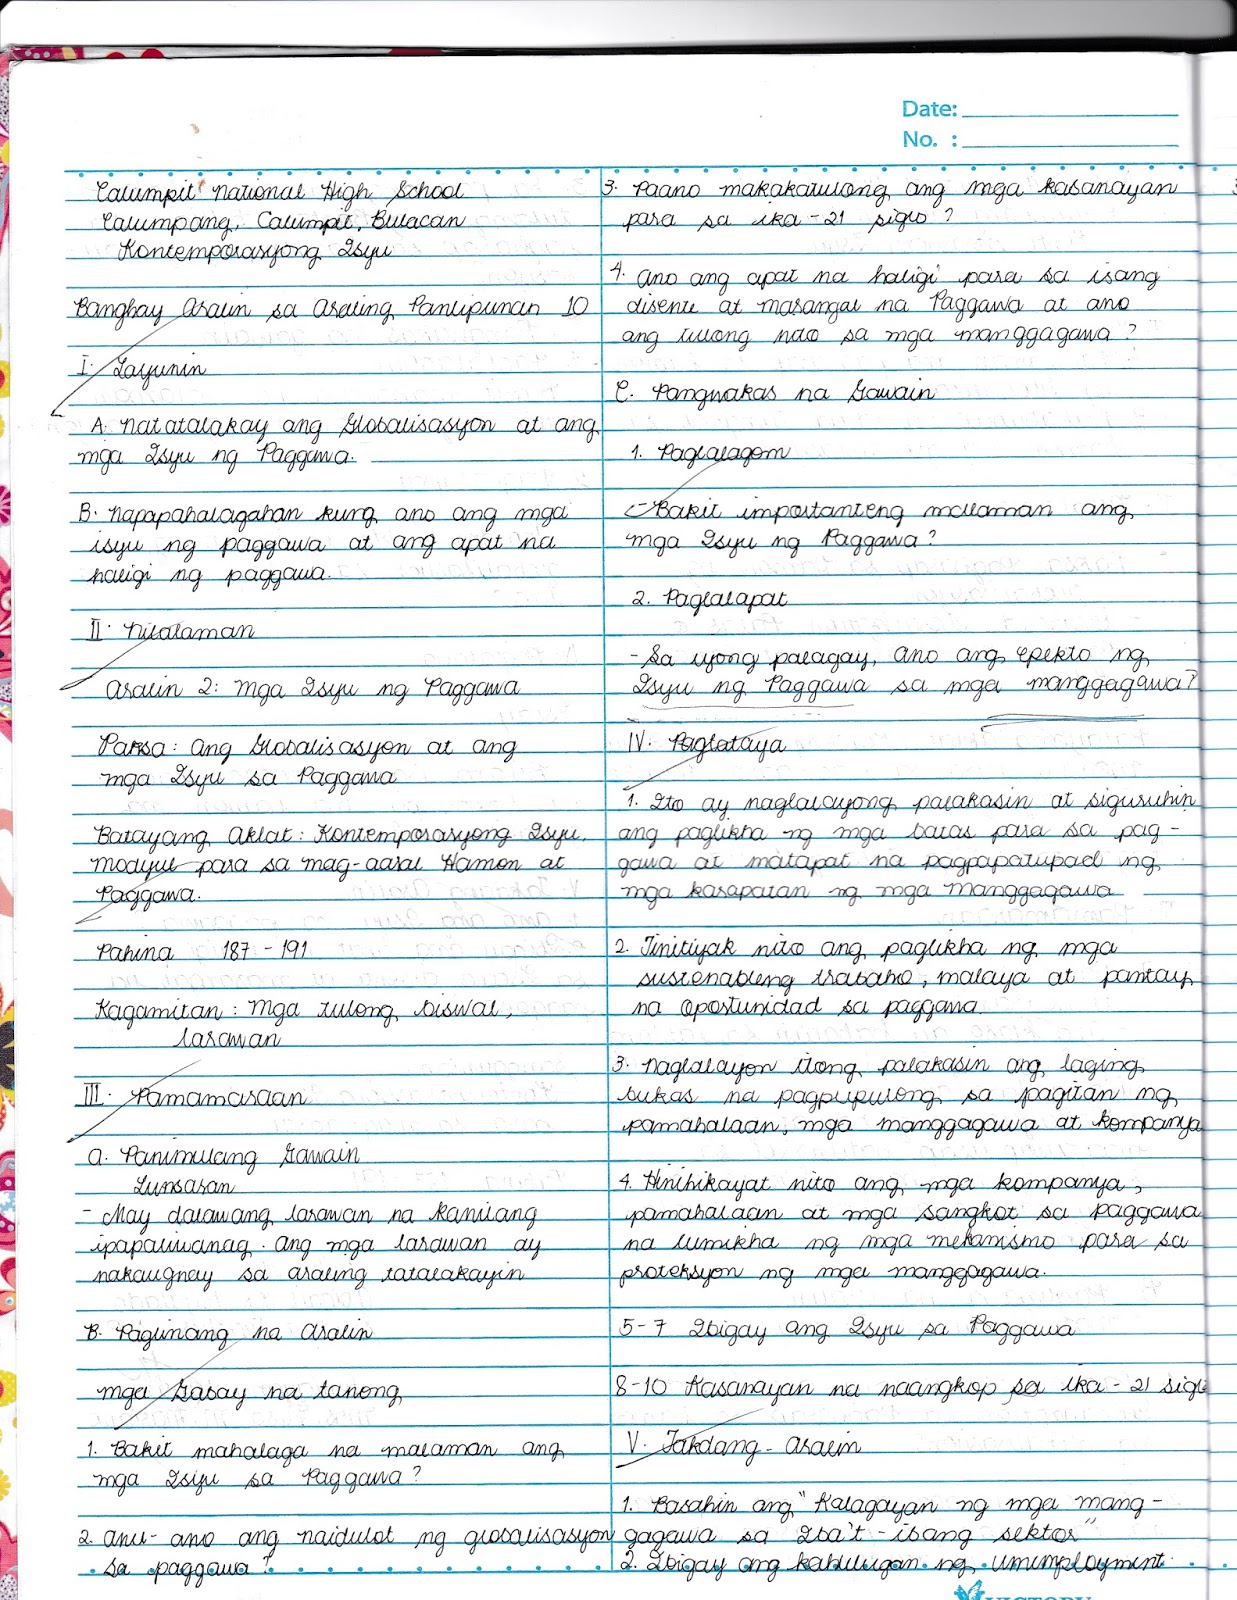 Date:
No. :
Calumpit National High School
Calumpang, Calumpit, Bulacan
Kontemporaryong Isyu
Banghay Aralin sa Araling Panlipunan 10
I. Layunin
A. Natatalakay ang Globalisasyon at ang
mga Isyu ng Paggawa.
B. Napapahalagahan kung ano ang mga
isyu ng paggawa at ang apat na
haligi ng paggawa.
II. Nilalaman
Aralin 2: Mga Isyu ng Paggawa
Paksa: Ang Globalisasyon at ang
mga Isyu sa Paggawa
Batayang Aklat: Kontemporaryong Isyu,
Modyul para sa mag-aaral Hamon at
Paggawa.
Pahina 187-191
Kagamitan: Mga tulong biswal,
larawan
III. Pamamaraan
a. Panimulang Gawain
Lunsaran
- May dalawang larawan na kanilang
ipapaliwanag. Ang mga larawan ay
nakaugnay sa araling tatalakayin
B. Paglinang na Aralin
mga Gabay na tanong
1. Bakit mahalaga na malaman ang
mga Isyu sa Paggawa?
2. Anu-ano ang naidulot ng globalisasyon
sa paggawa?
3. Paano makakatulong ang mga kasanayan
para sa ika-21 siglo?
4. Ano ang apat na haligi para sa isang
disente at marangal na Paggawa at ano
ang tulong nito sa mga manggagawa?
C. Pangwakas na Gawain
1. Paglalagom
- Bakit importanteng malaman ang
mga Isyu ng Paggawa?
2. Paglalapat
- Sa iyong palagay, Ano ang epekto ng
Isyu ng Paggawa sa mga manggagawa?
IV. Pagtataya
1. Ito ay naglalayong palakasin at siguruhin
ang paglikha ng mga batas para sa pag-
gawa at matapat na pagpapatupad ng
mga karapatan ng mga manggagawa
2. Tinitiyak nito ang paglikha ng mga
sustenableng trabaho, malaya at pantay
na oportunidad sa paggawa.
3. Naglalayon itong palakasin ang laging
bukas na pagpupulong sa pagitan ng
pamahalaan, mga manggagawa at kompanya
4. Hinihikayat nito ang mga kompanya,
pamahalaan at mga sangkot sa paggawa
na lumikha ng mga mekanismo para sa
proteksyon ng mga manggagawa.
5-7 Ibigay ang Isyu sa Paggawa
8-10 Kasanayan na naangkop sa ika-21 siglo
V. Takdang-Aralin
1. Basahin ang "Kalagayan ng mga mang-
gagawa sa Iba't-ibang sektor"
2. Ibigay ang kahulugan ng unemployment.